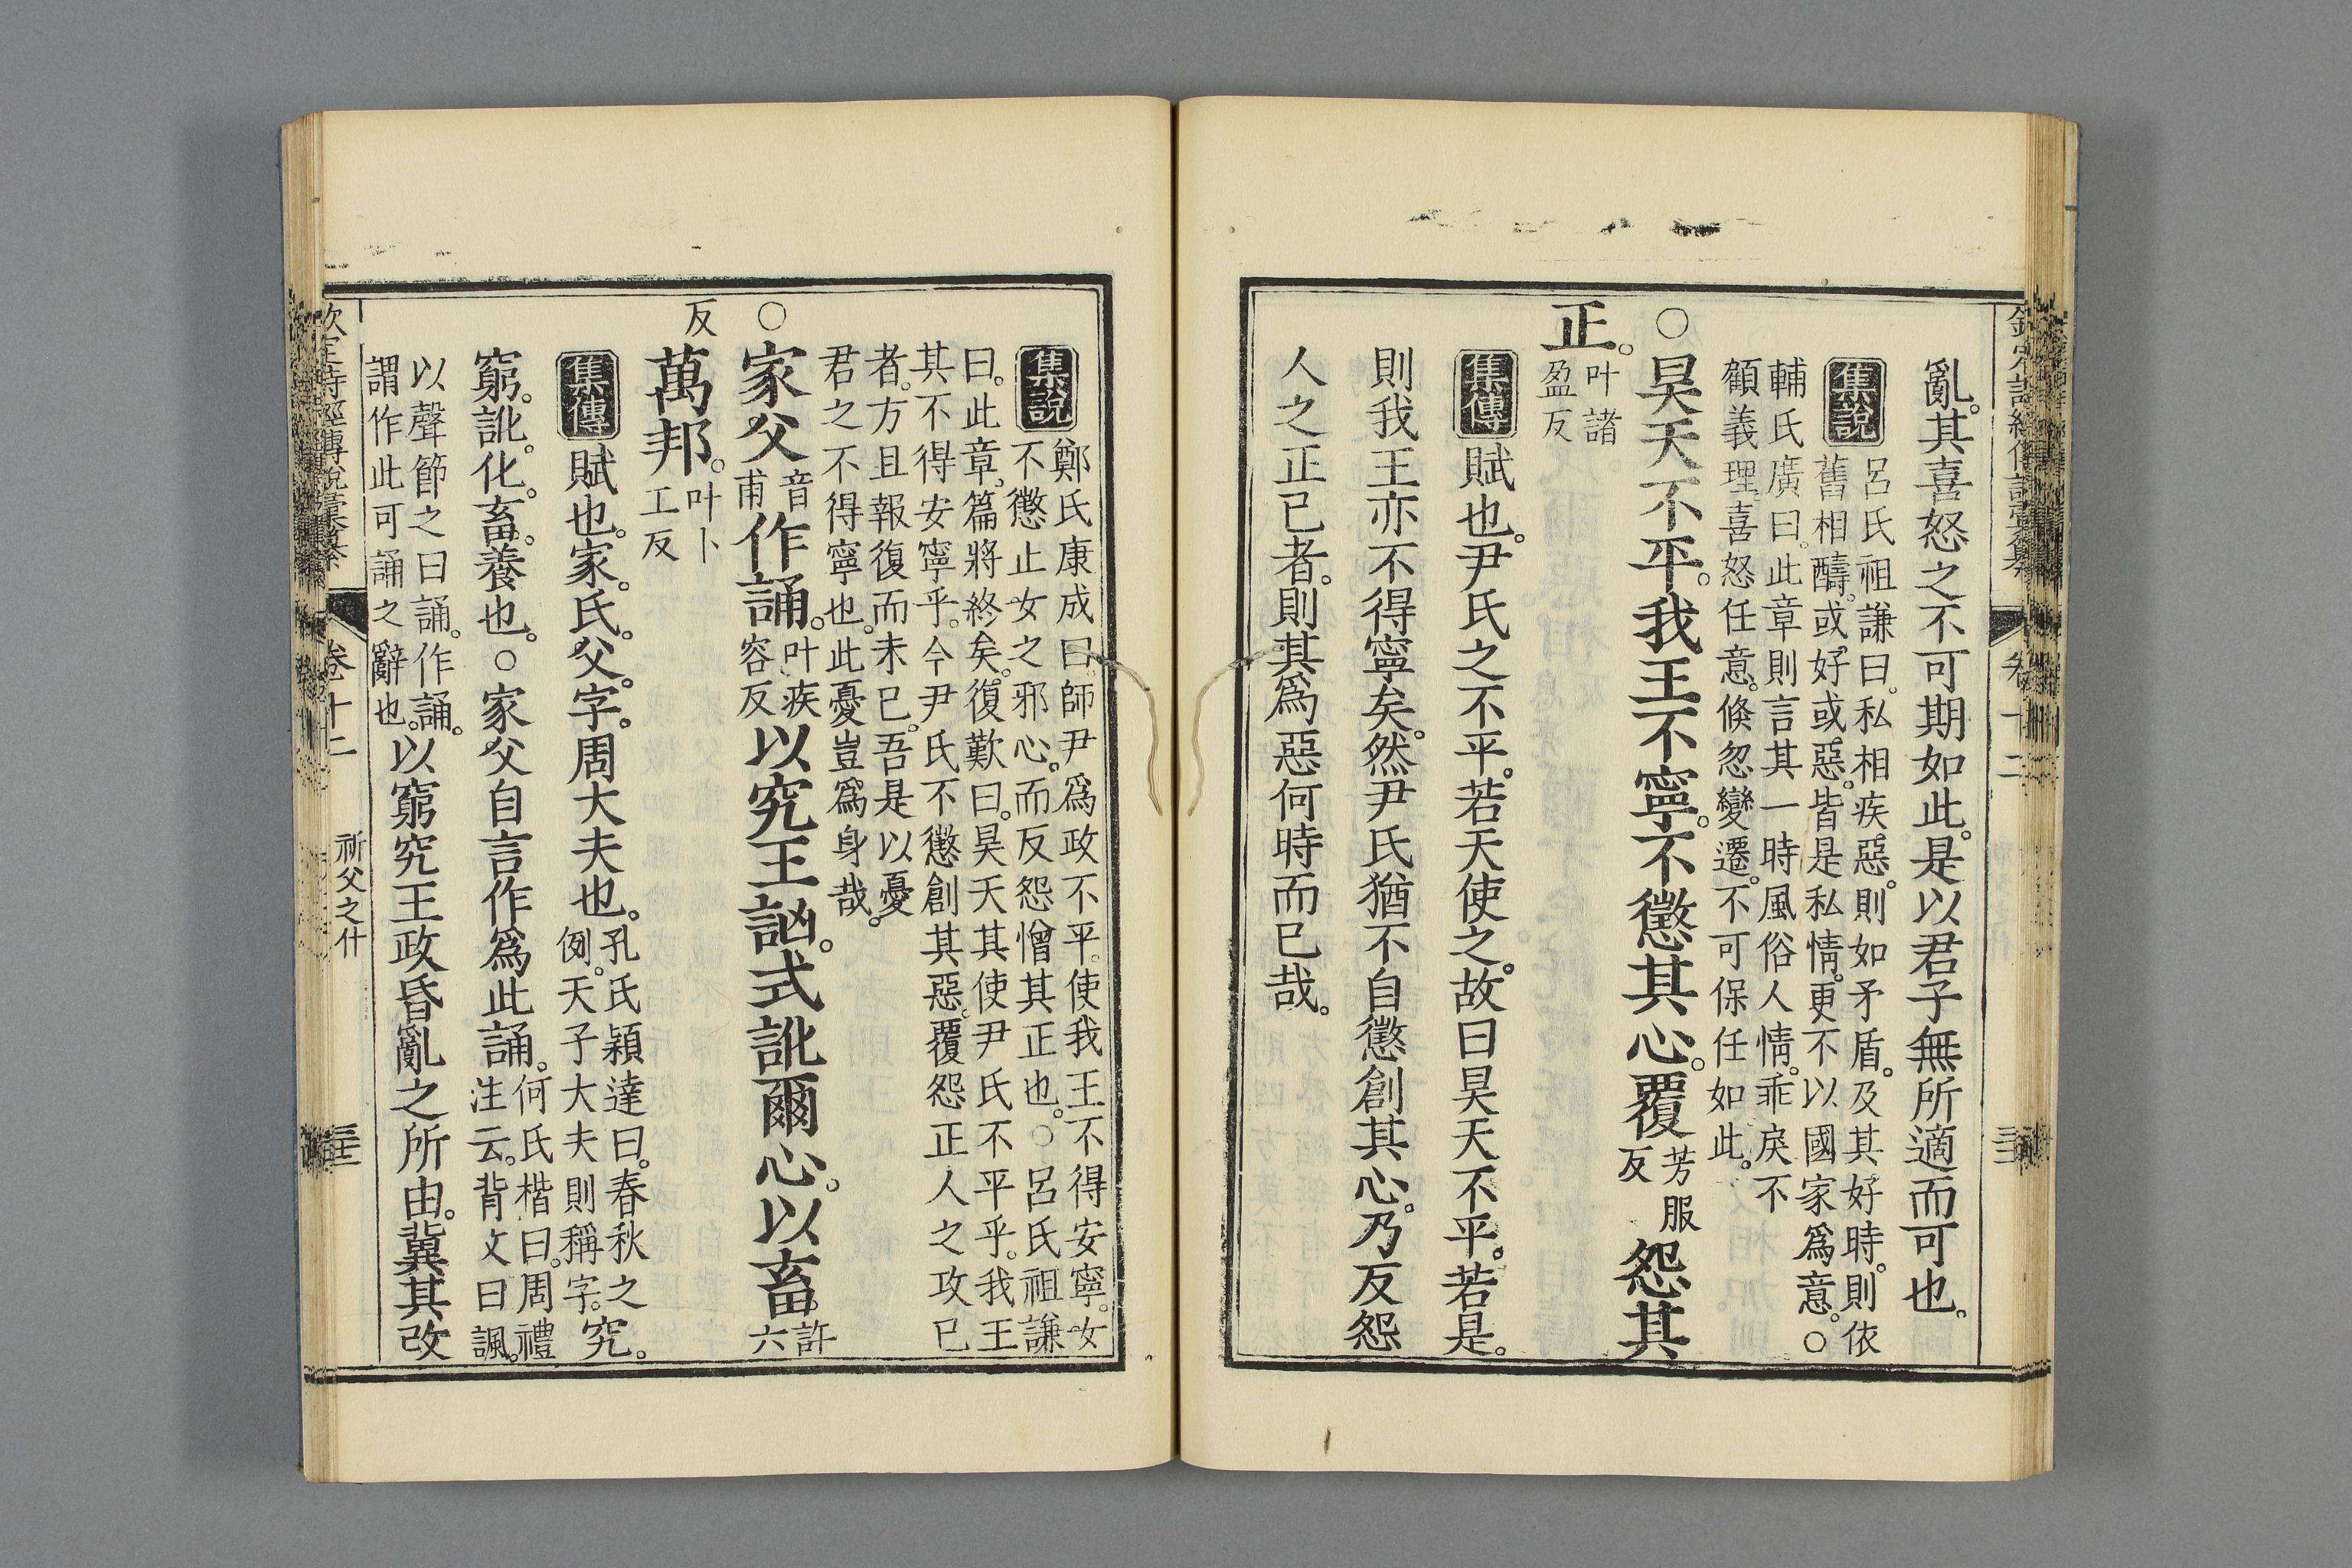 亂。其喜怒之不可期如此。是以君子無所適而可也。
集說
呂氏祖謙曰。私相疾惡。則如矛盾。及其好時。則依
舊相醻。或好或惡。皆是私情。更不以國家爲意。○
輔氏廣曰。此章則言其一時風俗人情。乖戾不
顧義理。喜怒任意。倏忽變遷。不可保任如此。
○昊天不平。我王不寧。不懲其心。覆芳服反怨其
正。叶諸盈反
集傳 賦也。尹氏之不平。若天使之。故曰昊天不平。若是。
則我王亦不得寧矣。然尹氏猶不自懲創其心。乃反怨
人之正己者。則其爲惡何時而已哉。
集說
鄭氏康成曰。師尹爲政不平。使我王不得安寧。女
不懲止女之邪心。而反怨憎其正也。○呂氏祖謙
曰。此章。篇將終矣。復歎曰。昊天其使尹氏不平乎。我王
其不得安寧乎。今尹氏不懲創其惡。覆怨正人之攻己
者。方且報復而未已。吾是以憂
君之不得寧也。此憂豈爲身哉。
○家父音甫作誦。叶疾容反以究王訩。式訛爾心。以畜許六
反萬邦。叶卜工反
集傳 賦也。家。氏。父。字。周大夫也。孔氏穎達曰。春秋之例。天子大夫則稱字。究。
窮。訛。化。畜。養也。○家父自言作爲此誦。何氏楷曰。周禮注云。背文曰諷。
以聲節之曰誦。作誦。謂作此可誦之辭也。以窮究王政昏亂之所由。冀其改
欽定詩經傳說彙纂
卷十二
祈父之什